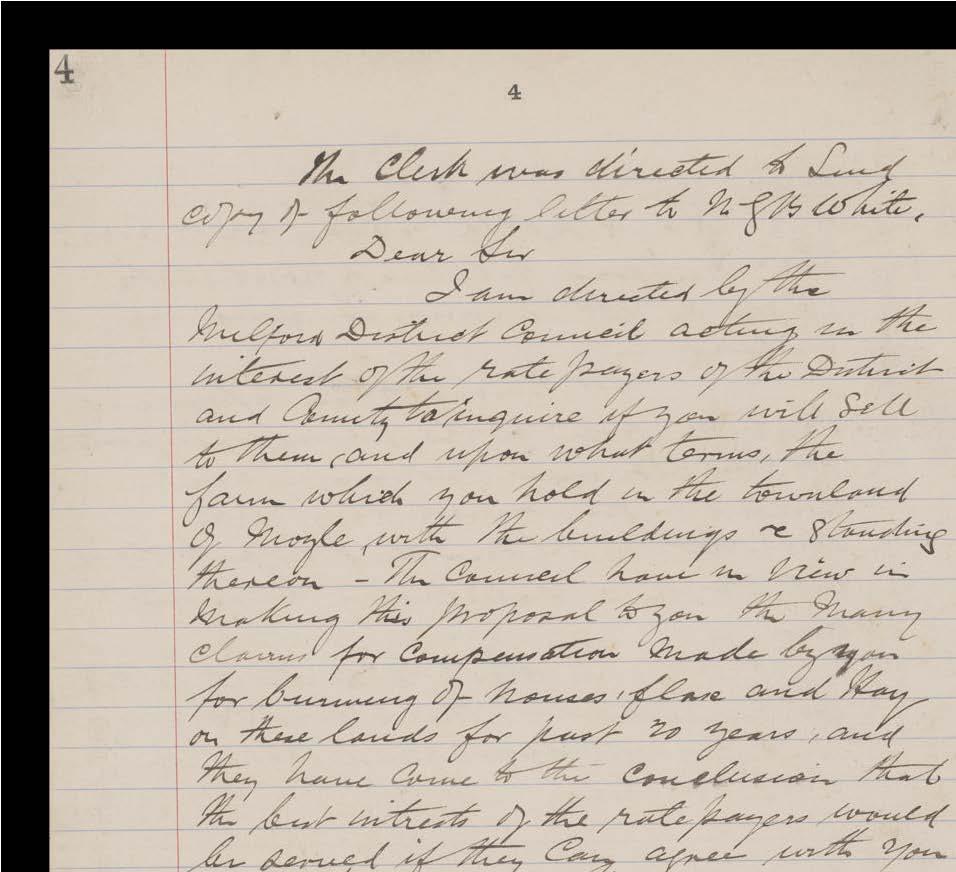 4
4
The Clerk was directed to Send
copy of following letter to N G B White.
Dear Sir
I am directed by the
Milford District Council acting in the
interest of the rate payers of the District
and County to inquire if you will Sell
to them, and upon what terms, the
farm which you hold in the townland
of Moyle, with the buildings &c Standing
thereon - The Council have in view in
Making this proposal to you the Many
claims for Compensation Made by you
for burning of houses, flax and Hay
on these lands for past 20 years, and
they have Come to the Conclusion that
the best intrests of the rate payers would
be served if they Can agree with you